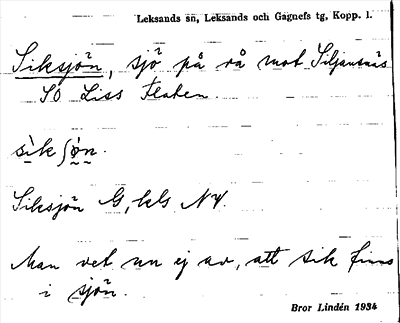 Leksands sn, Leksands och Gagnefs tg, Kopp. l.
Siksjön, sjö på rå mot Siljansnäs
SO Liss Flaten
sìkʃòn.
Siksjön G, kls NV.
Man vet nu ej av, att sik finns
i sjön.
Bror Lindén 1934